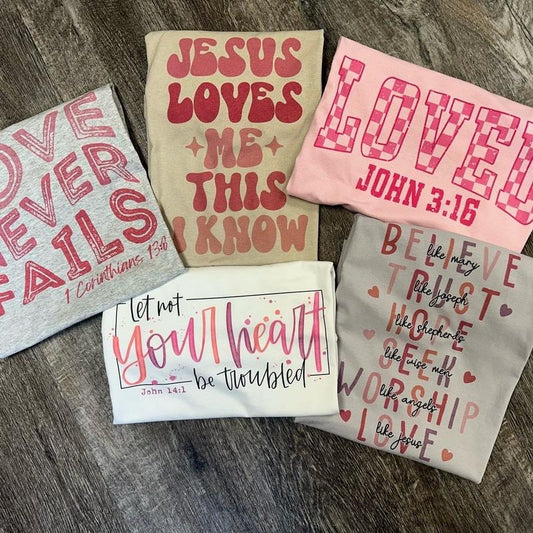 LOVE
NEVER
FAILS
1 Corinthians 13:8
JESUS
LOVES
ME
THIS
I KNOW
LOVED
JOHN 3:16
let not
your heart
be troubled
John 14:1
BELIEVE
like mary
TRUST
like joseph
HOPE
like shepherds
SEEK
like wise men
WORSHIP
like angels
LOVE
like Jesus